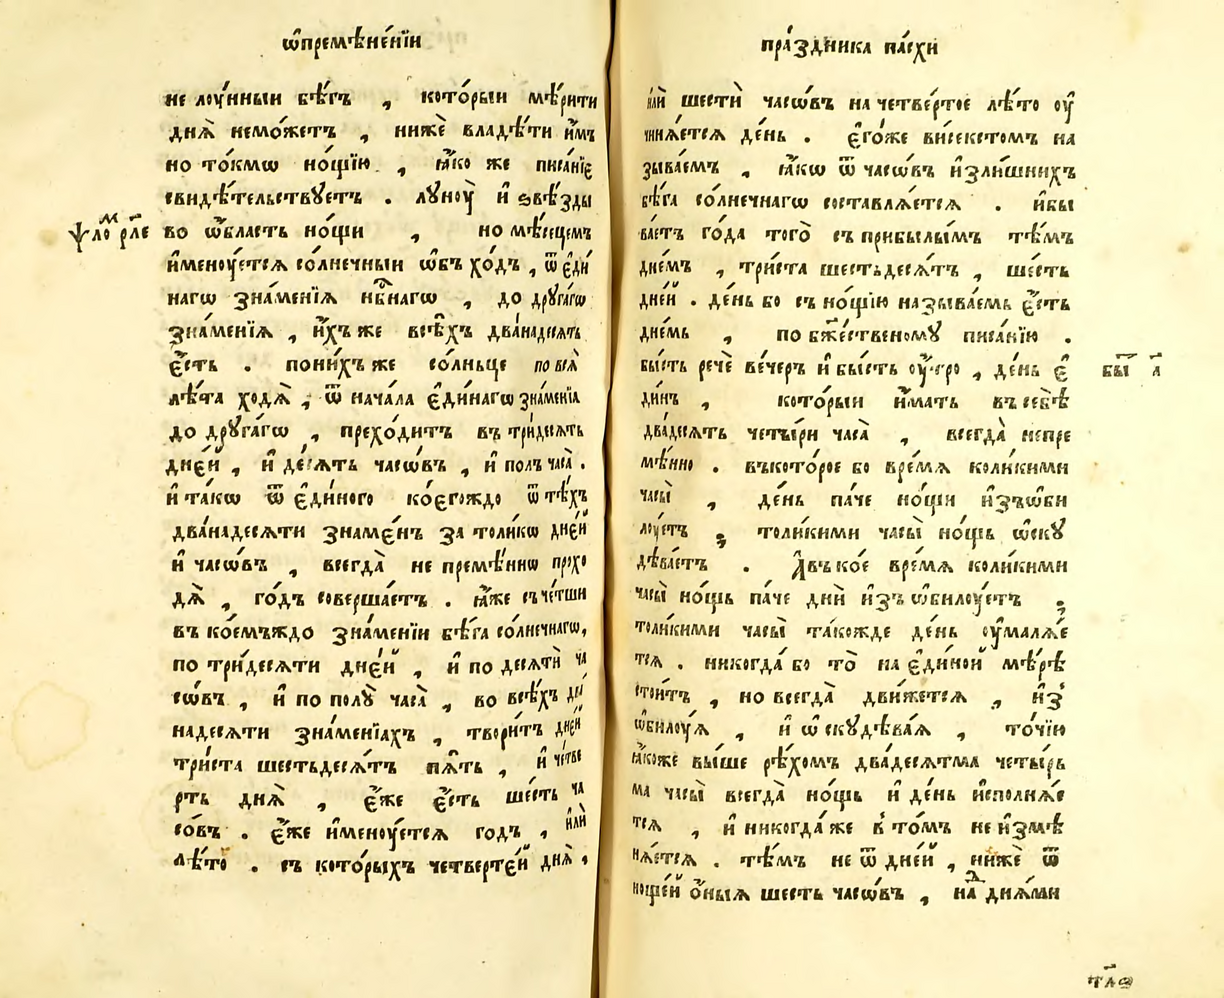 ѡ҆премѣне́нїи
не лоу́нныи бѣ́гъ , кото́рыи мѣ́рити
днѧ̀ немо́жетъ , нижѐ владѣ́ти и҆́мъ
но то́кмѡ но́щїю , ꙗ҆́ко же писа́нїе
свидѣ́тельствꙋетъ . лꙋноу̀ и҆ ѕвѣ́зды
ѱало́м рл҃е
во ѡ҆́бласть но́щи , но мѣ́сецемъ
и҆меноу́етсѧ со́лнечныи ѡ҆бъ хо́дъ , ѿ є҆ди́
нагѡ зна́менїѧ нб҃наго , до дрꙋга́гѡ
зна́менїѧ , и҆́хъ же всѣ́хъ двана́десѧть
є҆́сть . пони́хъ же со́лньце по всѧ̀
лѣ́та ходѧ̀ , ѿ нача́ла є҆ди́нагѡ зна́менїѧ
до дрꙋга́гѡ , прехо́дитъ въ три́десѧть
дне́й , и҆ де́сѧть часѡ́въ , и҆ полъ часа̀ .
и҆ та́кѡ ѿ є҆ди́ного ко́єгождо ѿ тѣ́хъ
двана́десѧти знаме́нъ за толи́кѡ дне́й
и҆ часѡ́въ , всегда̀ не премѣ́ннѡ прохо
дѧ̀ , го́дъ соверша́етъ . ꙗ҆́же съче́тши
въ ко́емъждо зна́менїи бѣ́га со́лнечнагѡ,
по три́десѧти дне́й , и҆ по десѧтѝ ча
сѡ́въ , и҆ по полꙋ̀ часа̀ , во всѣ́хъ два
надесѧти зна́менїахъ , твори́тъ дне́й
три́ста шестьдесѧ́тъ пѧ́ть , и҆ че́тве
рть днѧ̀ , є҆́же є҆́сть ше́сть ча
со́въ . є҆́же и҆меноу́етсѧ го́дъ , и҆лѝ
лѣ́то . съ кото́рыхъ четверте́й днѧ̀ ,
пра́здника па́схи
и҆лѝ шестѝ часѡ́въ на четве́ртое лѣ́то оу҆
чинѧ́етсѧ де́нь . є҆го́же висекстомъ на
зыва́емъ , ꙗ҆́кѡ ѿ часѡ́въ и҆зли́шнихъ
бѣ́га со́лнечнагѡ составлѧ́етсѧ . и҆бы
ва́етъ го́да того̀ съ прибылы́мъ тѣ́мъ
дне́мъ , три́ста шестьдесѧ́тъ , ше́сть
дне́й . де́нь бо съ но́щїю называ́емь є҆́сть
дне́мь , по бж҃е́ственомꙋ писа́нїю .
бы́сть речѐ ве́черъ и҆ бы́сть оу҆́тро , де́нь є҆
бы҃ї а҃
ди́нъ , кото́рыи и҆́мать въ себѣ̀
два́десѧть четы́ри часа̀ , всегда̀ непре
мѣ́нно . въкото́рое бо вре́мѧ коли́кими
часы̀ , де́нь па́че но́щи и҆зъѡби
лоу́етъ ; толи́кими часы̀ но́щь ѡ҆скꙋ
дѣва́етъ . А҆въко́е вре́мѧ коли́кими
часы̀ но́щь па́че днѝ и҆зъ ѡ҆билоу́етъ ;
толи́кими часы̀ та́кожде де́нь оу҆малѧ́е
тсѧ . никогда́ бо то̀ на є҆ди́ной мѣ́рѣ
стои́тъ , но всегда̀ дви́жетсѧ , и҆з̾
ѡ҆билоу́ѧ , и҆ ѡ҆скꙋдѣва́ѧ , то́чїю
ꙗ҆́коже вы́ше рѣ́хомъ два́десѧтма четы́рь
ма часы̀ всегда̀ но́щь и҆ де́нь и҆сполнѧ́е
тсѧ , и҆ никогда́ же в̾ то́мъ не и҆змѣ
нѧ́етсѧ . тѣ́мъ не ѿ дне́й , нижѐ ѿ
ноще́й о҆́ныѧ ше́сть часѡ́въ , на́д днѧ́ми